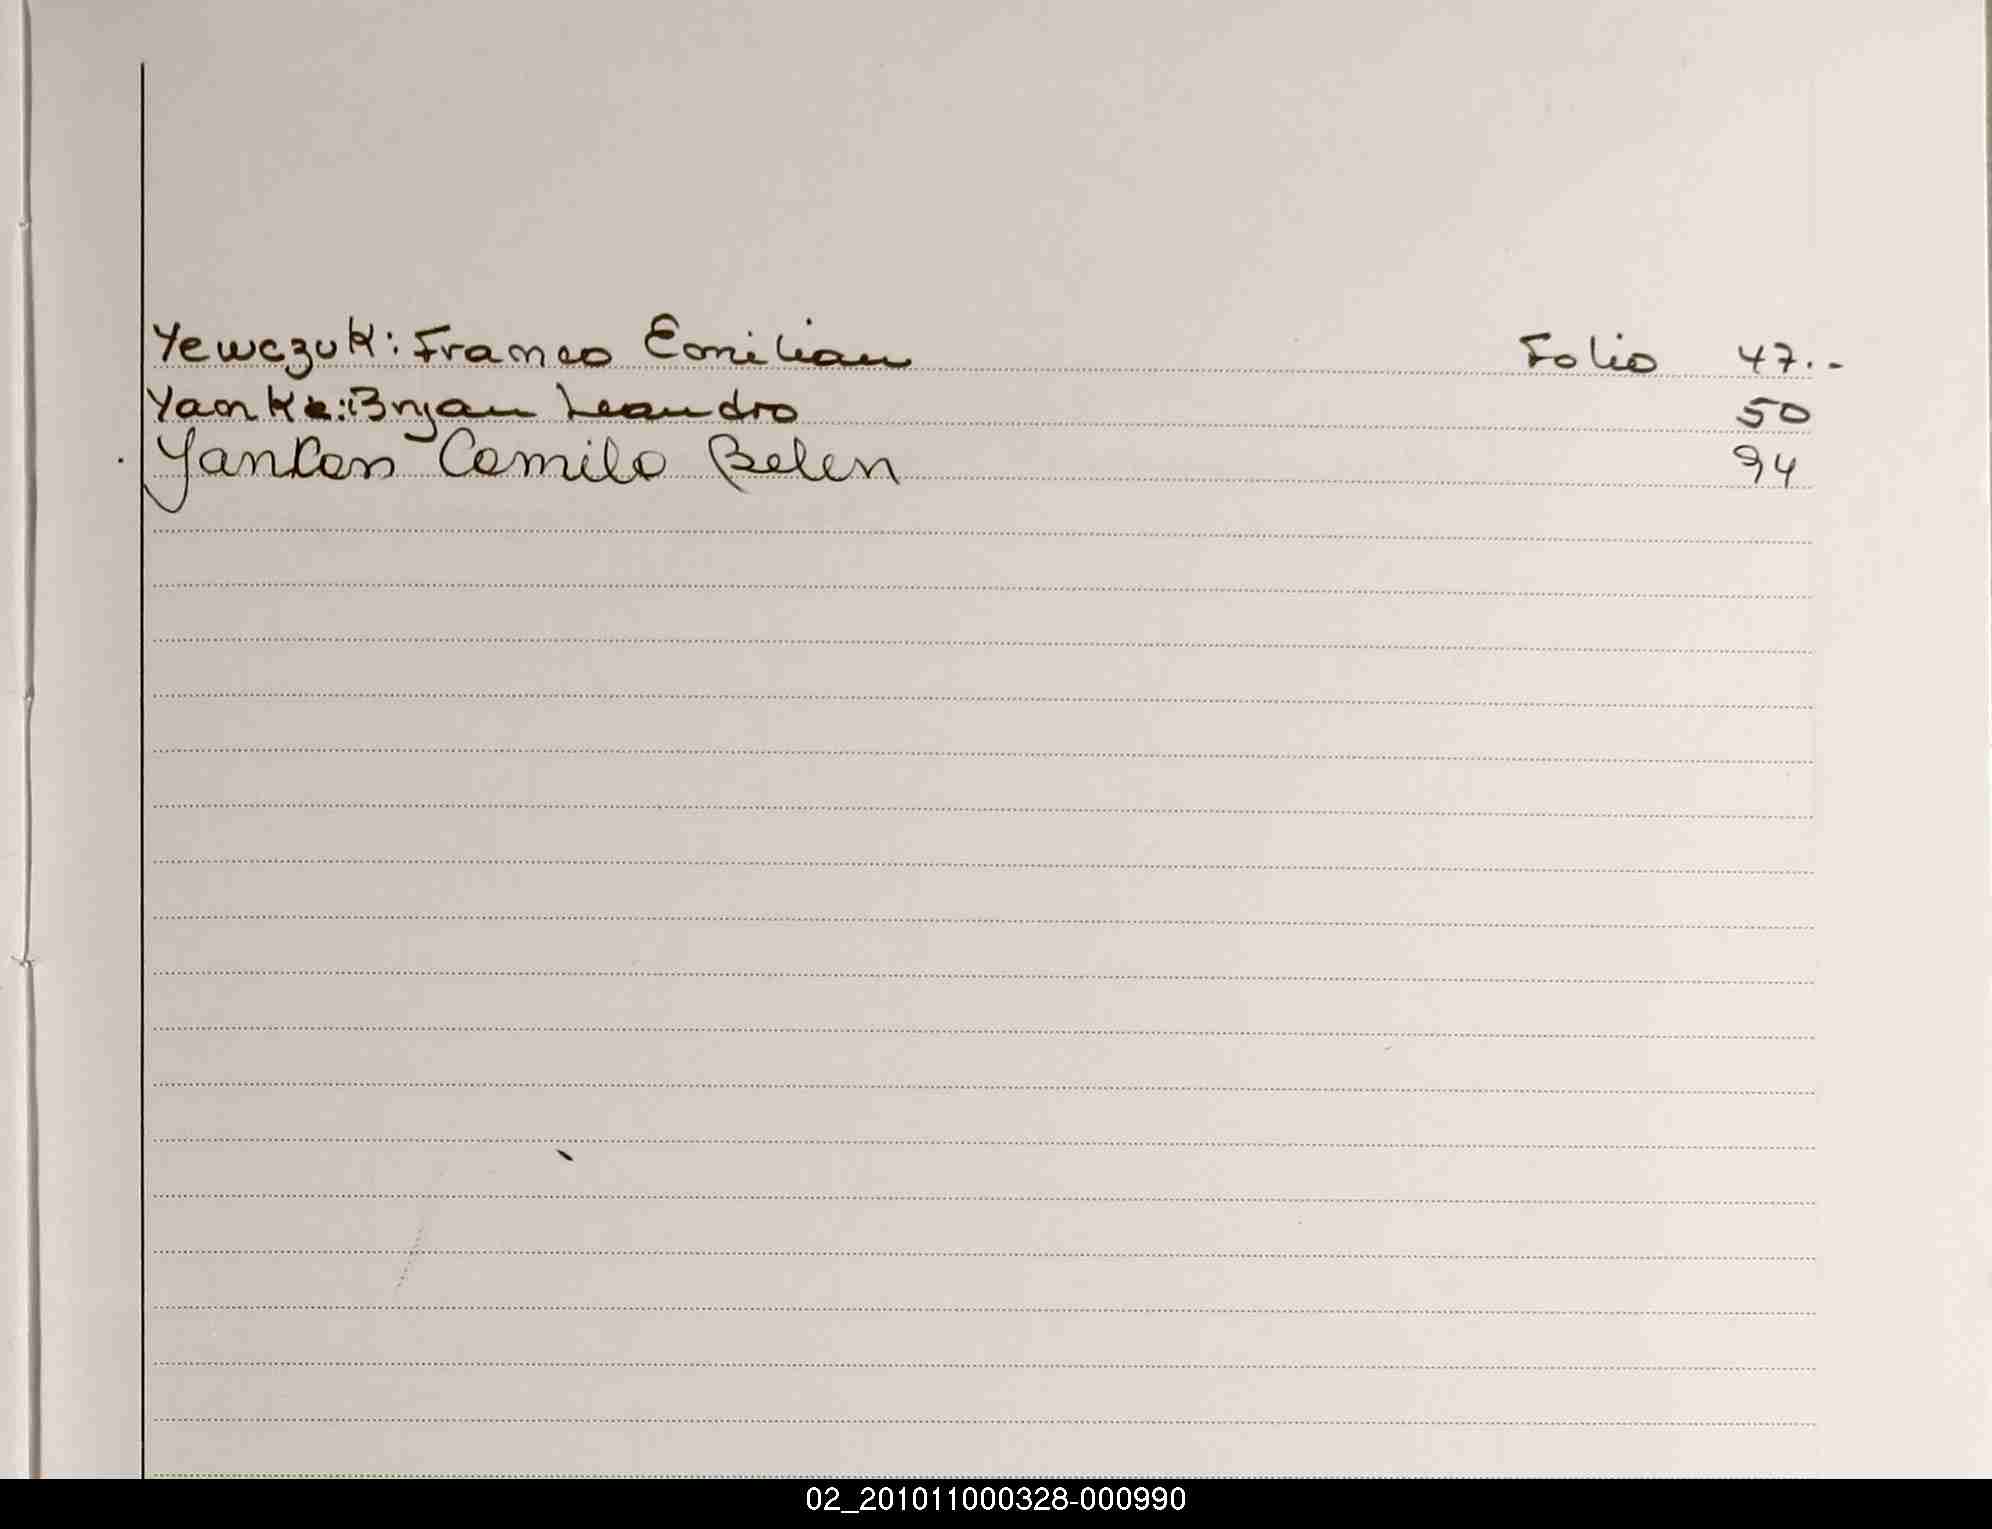 Yewczuk: Franco Emilian Folio 47.-
Yanke: Bryan Leandro 50
Yanken Camila Belen 94
02_201011000328-000990